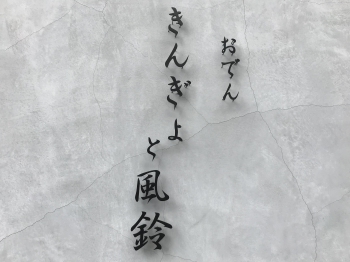 おでん
きんぎょと風鈴